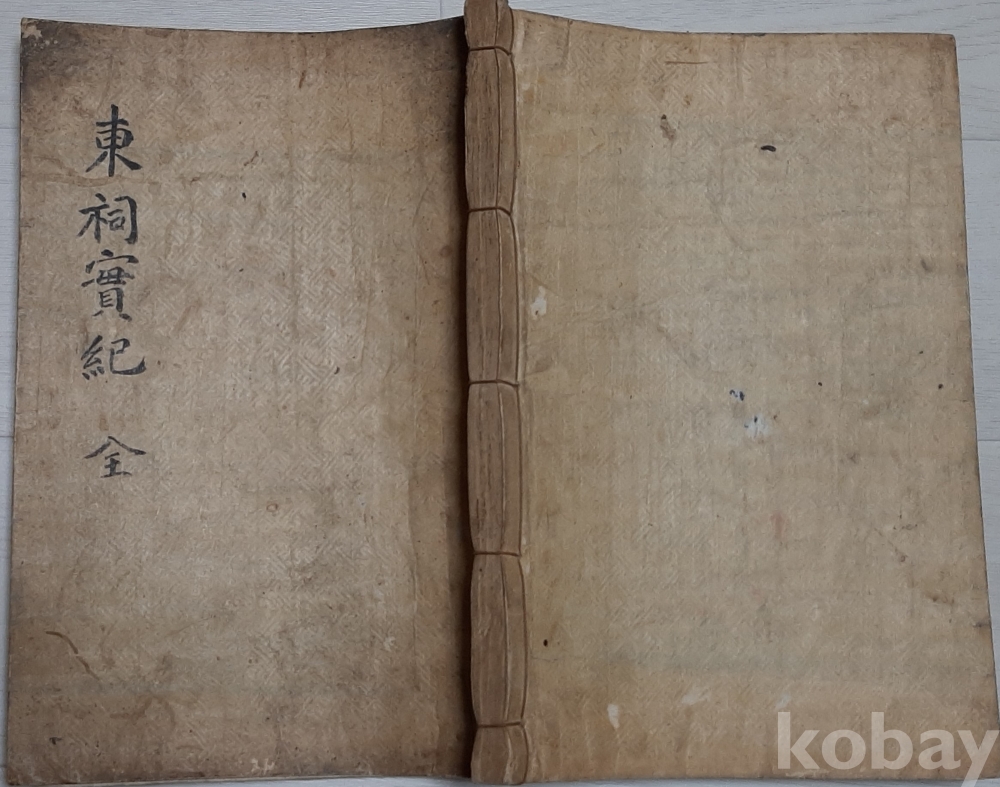 東祠實紀 全
kobay